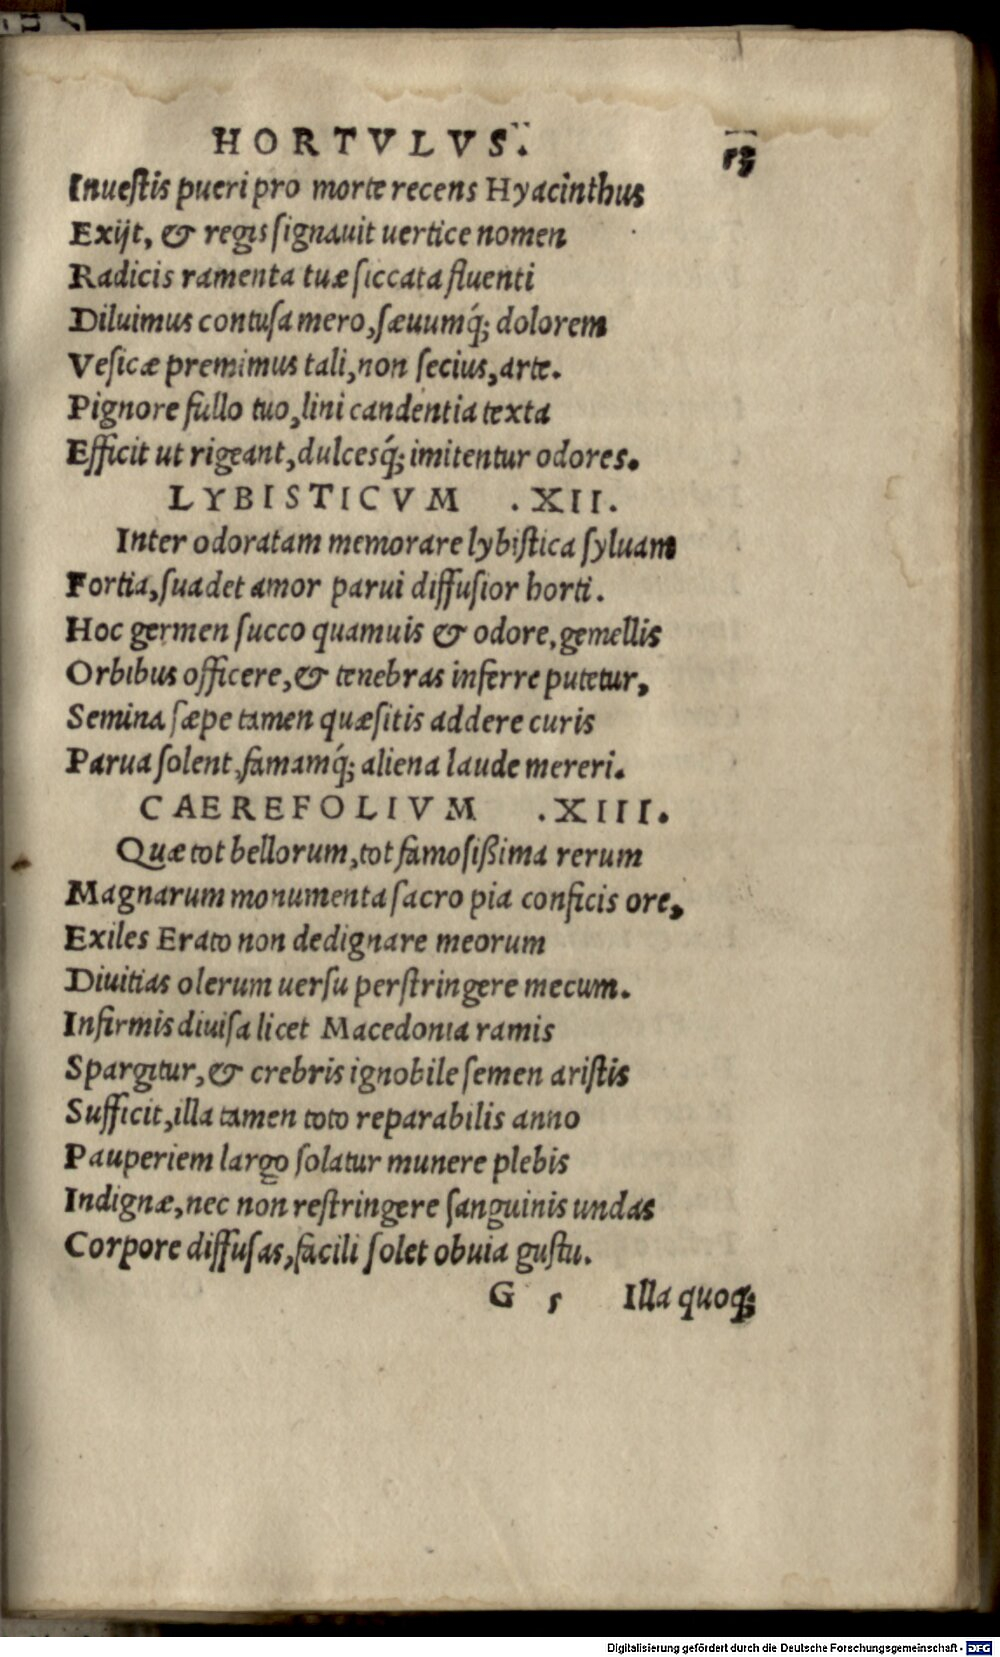 HORTVLVS.
Inuestis pueri pro morte recens Hyacinthus
Exijt, & regis signauit uertice nomen
Radicis ramenta tuæ siccata fluenti
Diluimus contusa mero, sæuumq́; dolorem
Vesicæ premimus tali, non secius, arte.
Pignore fullo tuo, lini candentia texta
Efficit ut rigeant, dulcesq́; imitentur odores.
LYBISTICVM .XII.
Inter odoratam memorare lybistica syluam
Fortia, suadet amor parui diffusior horti.
Hoc germen succo quamuis & odore, gemellis
Orbibus officere, & tenebras inferre putetur,
Semina sæpe tamen quæsitis addere curis
Parua solent, famamq́; aliena laude mereri.
CAEREFOLIVM .XIII.
Quæ tot bellorum, tot famosißima rerum
Magnarum monumenta sacro pia conficis ore,
Exiles Erato non dedignare meorum
Diuitias olerum uersu perstringere mecum.
Infirmis diuisa licet Macedonia ramis
Spargitur, & crebris ignobile semen aristis
Sufficit, illa tamen toto reparabilis anno
Pauperiem largo solatur munere plebis
Indignæ, nec non restringere sanguinis undas
Corpore diffusas, facili solet obuia gustu.
G 5 Illa quoq;
Digitalisierung gefördert durch die Deutsche Forschungsgemeinschaft - DFG